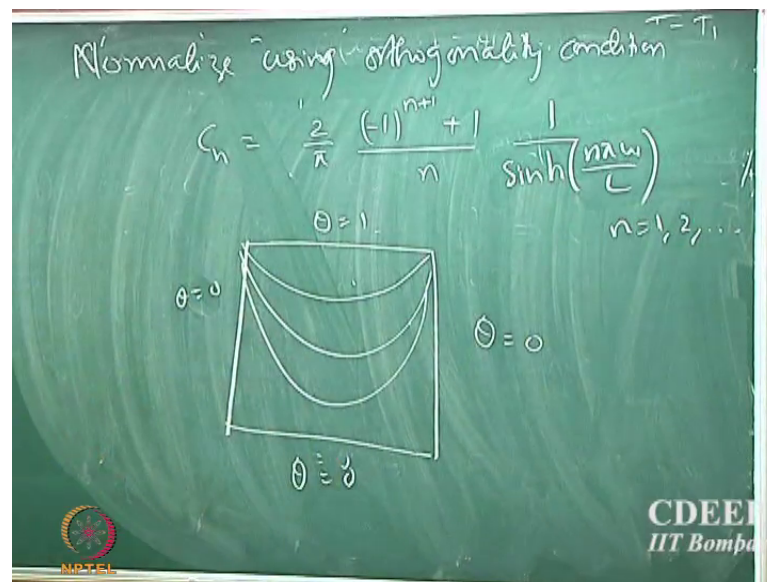 T - T₁
Normalize using orthogonality condition
Cₙ = 2/π ((-1)ⁿ⁺¹ + 1)/n 1/sinh(nπw/L)
n=1,2,...
θ=1.
θ=0
θ=0
θ=0
CDEEP
IIT Bombay
NPTEL